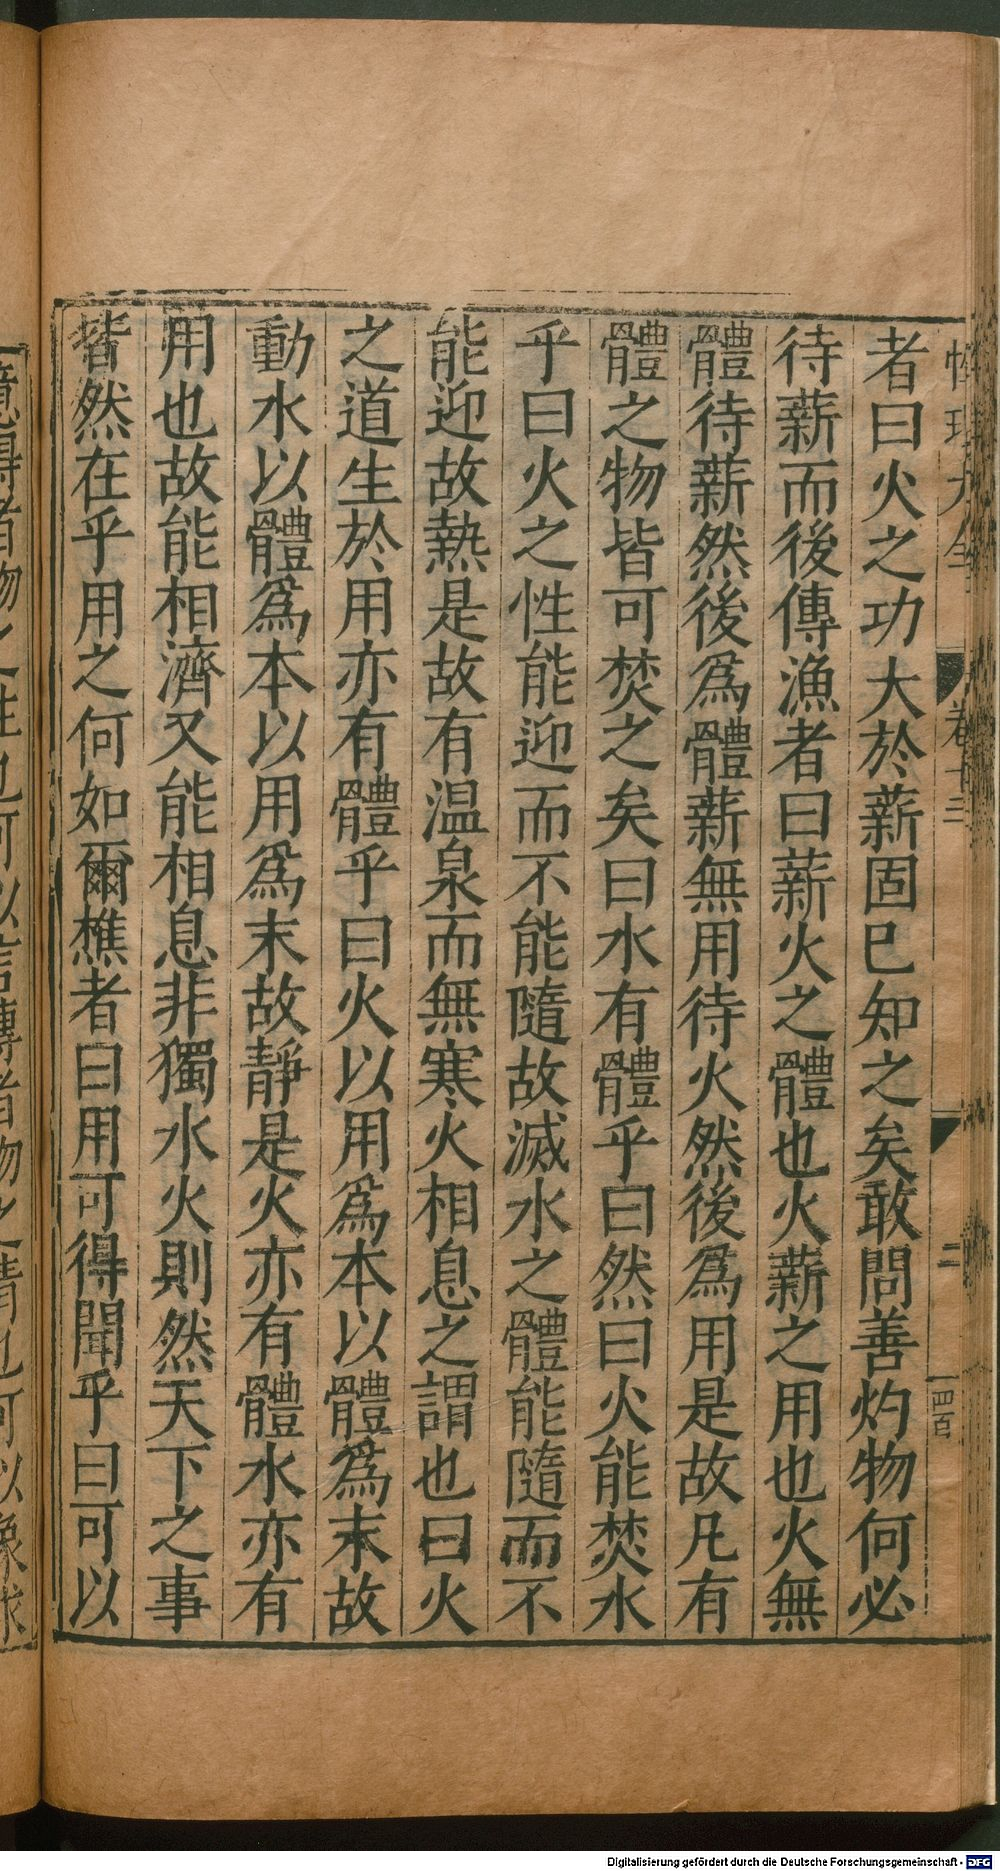 者曰火之功大於薪固已知之矣敢問善灼物何必
待薪而後傳漁者曰薪火之體也火薪之用也火無
體待薪然後爲體薪無用待火然後爲用是故凡有
體之物皆可焚之矣曰水有體乎曰然曰火能焚水
乎曰火之性能迎而不能隨故滅水之體能隨而不
能迎故熱是故有温泉而無寒火相息之謂也曰火
之道生於用亦有體乎曰火以用爲本以體爲末故
動水以體爲本以用爲末故靜是火亦有體水亦有
用也故能相濟又能相息非獨水火則然天下之事
皆然在乎用之何如爾樵者曰用可得聞乎曰可以
卷十二
二
四百
Digitalisierung gefördert durch die Deutsche Forschungsgemeinschaft - DFG